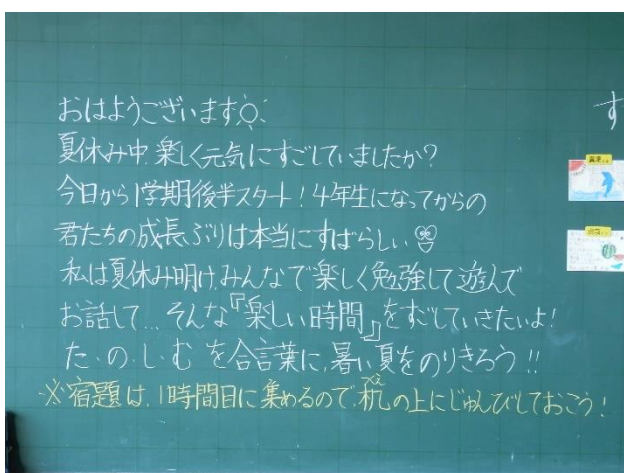 おはようございます☼
夏休み中、楽しく元気にすごしていましたか？
今日から1学期後半スタート！4年生になってからの
君たちの成長ぶりは本当にすばらしい
私は夏休み明け、みんなで楽しく勉強して遊んで
お話して...そんな『楽しい時間』をすごしていきたいよ！
た・の・し・む を合言葉に、暑い夏をのりきろう!!
※宿題は、1時間目に集めるので、机の上にじゅんびしておこう！
す